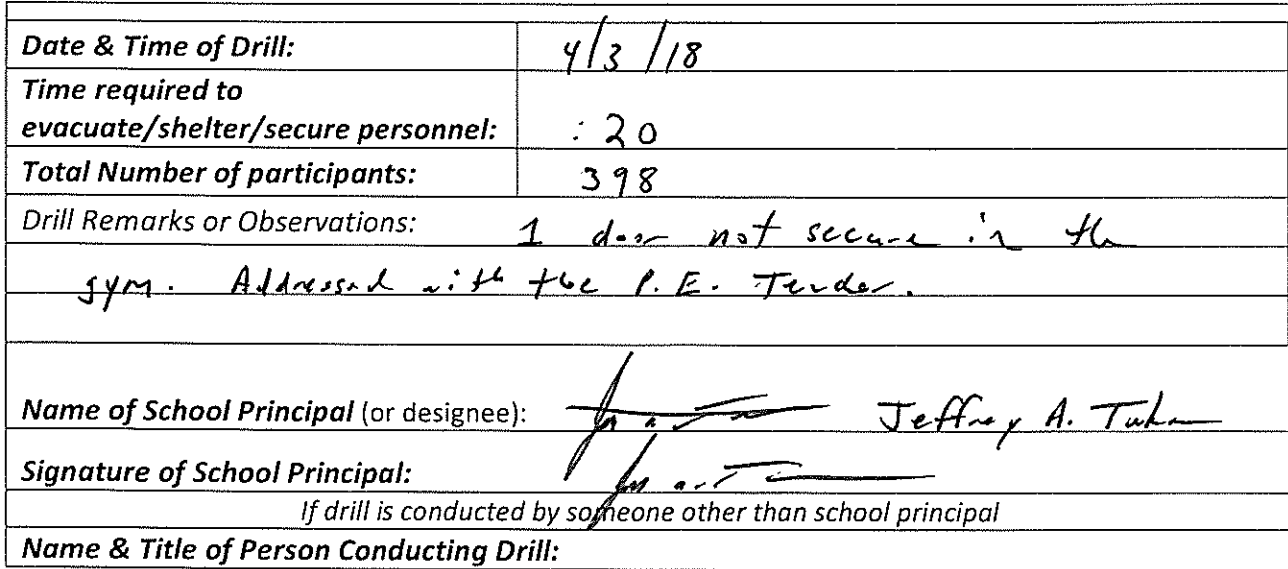 Date & Time of Drill: 4/3/18
Time required to
evacuate/shelter/secure personnel: :20
Total Number of participants: 398
Drill Remarks or Observations: 1 door not secure in the
gym. Addressed with the P.E. Teacher.
Name of School Principal (or designee): Jeffrey A.
Signature of School Principal:
If drill is conducted by someone other than school principal
Name & Title of Person Conducting Drill: